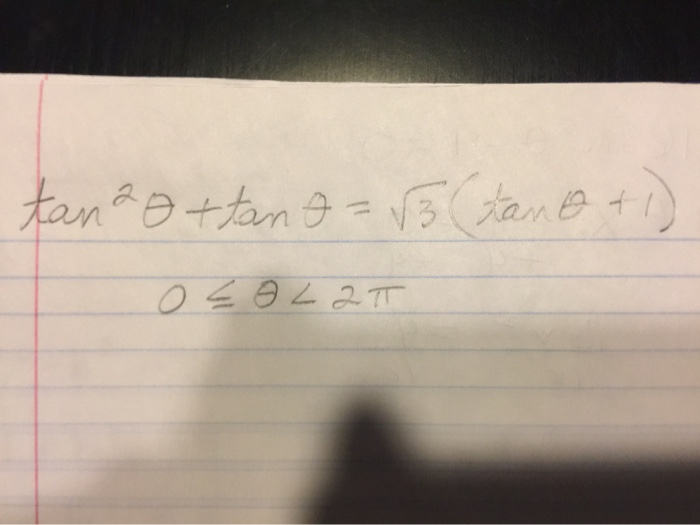 tan²θ + tan θ = √3 (tan θ + 1)
0 ≤ θ < 2π